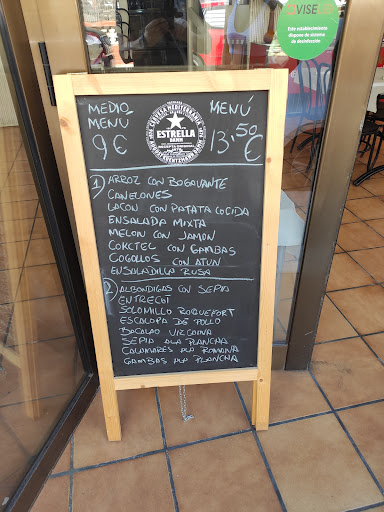 VISE
Este establecimiento
dispone de sistema
de desinfección
MEDIO
MENÚ
9€
CERVEZA MEDITERRÁNEA
ESTRELLA
DAMM
MENÚ
13,50 €
1) ARROZ CON BOGAVANTE
CANELONES
LACON CON PATATA COCIDA
ENSALADA MIXTA
MELON CON JAMON
COKCTEL CON GAMBAS
COGOLLOS CON ATUN
ENSALADILLA RUSA
2) ALBONDIGAS CON SEPIA
ENTRECOT
SOLOMILLO ROQUEFORT
ESCALOPA DE POLLO
BACALAO VIZCAINA
SEPIA ALA PLANCHA
CALAMARES ALA ROMANA
GAMBAS ALA PLANCHA